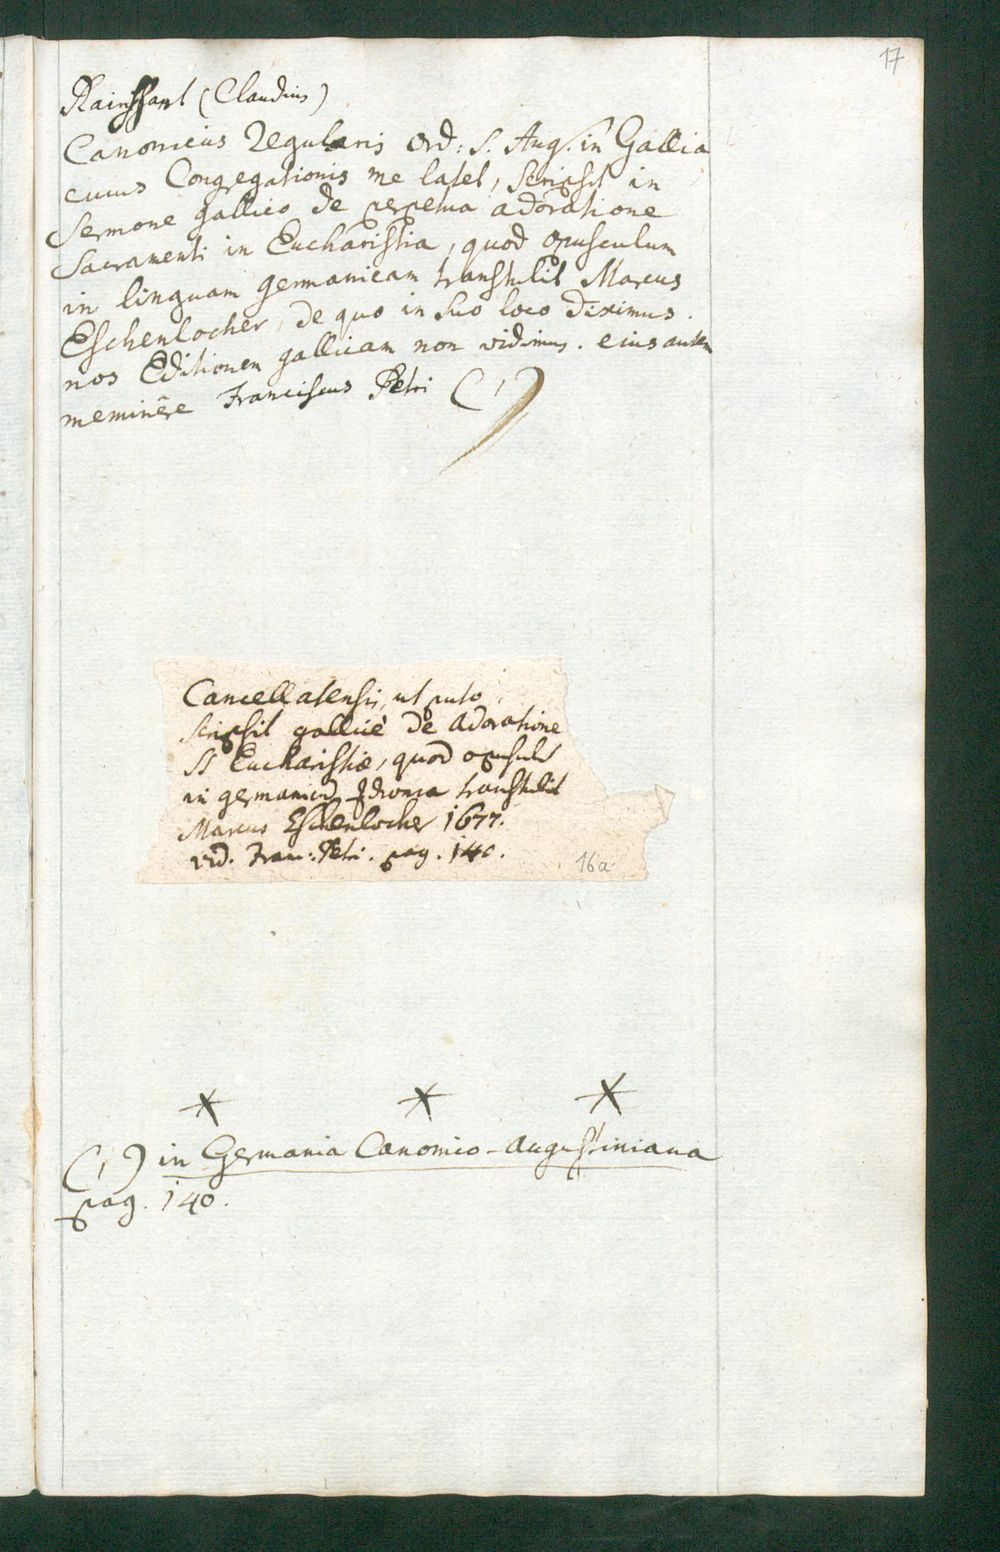 17
Rainssant (Claudius)
Canonicus Regularis Ord: S. Aug. in Gallia
cuius Congregationis me latet, scripsit in
Sermone gallico de perpetua adoratione
Sacramenti in Eucharistia, quod opusculum
in linguam germanicam transtulit Marcus
Eschenlocher, de quo in suo loco diximus.
nos Editionem gallicam non vidimus. eius autem
meminêre Franciscus Petri (1)
Cancellatensis, ut puto,
scripsit gallicè de Adoratione
SS Eucharistiæ, quod opuscul
in germanicu transtulit
Marcus Eschenlocher 1677.
vid. Franc: Petri. pag. 140.
16a
(1) in Germania Canonico-Augustiniana
pag. 140.